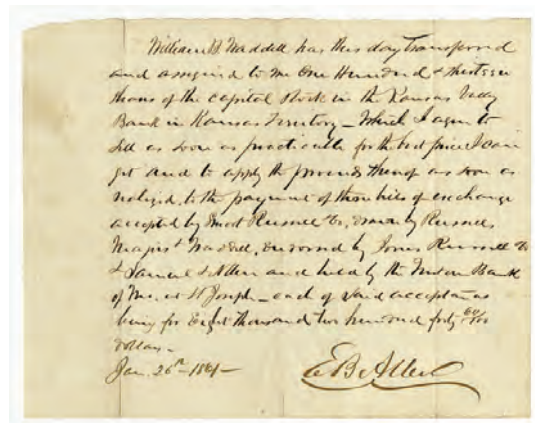 William B Waddell has this day transferred
and assigned to me One Hundred & thirteen
shares of the capital stock in the Kansas Valley
Bank in Kansas Territory – Which I agree to
sell as soon as practicable for the best price I can
get and to apply the proceeds thereof as soon as
realized, to the payment of three bills of exchange
accepted by Russell &c, drawn by Russell,
Majors & Waddell, endorsed by Jones Russell &c
& Samuel & Allen and held by the Bank
of Mo. at St Joseph – each of said acceptances
being for Eight thousand two hundred forty 60/100
dollars –
Jan. 26th 1861 –
E B Allen